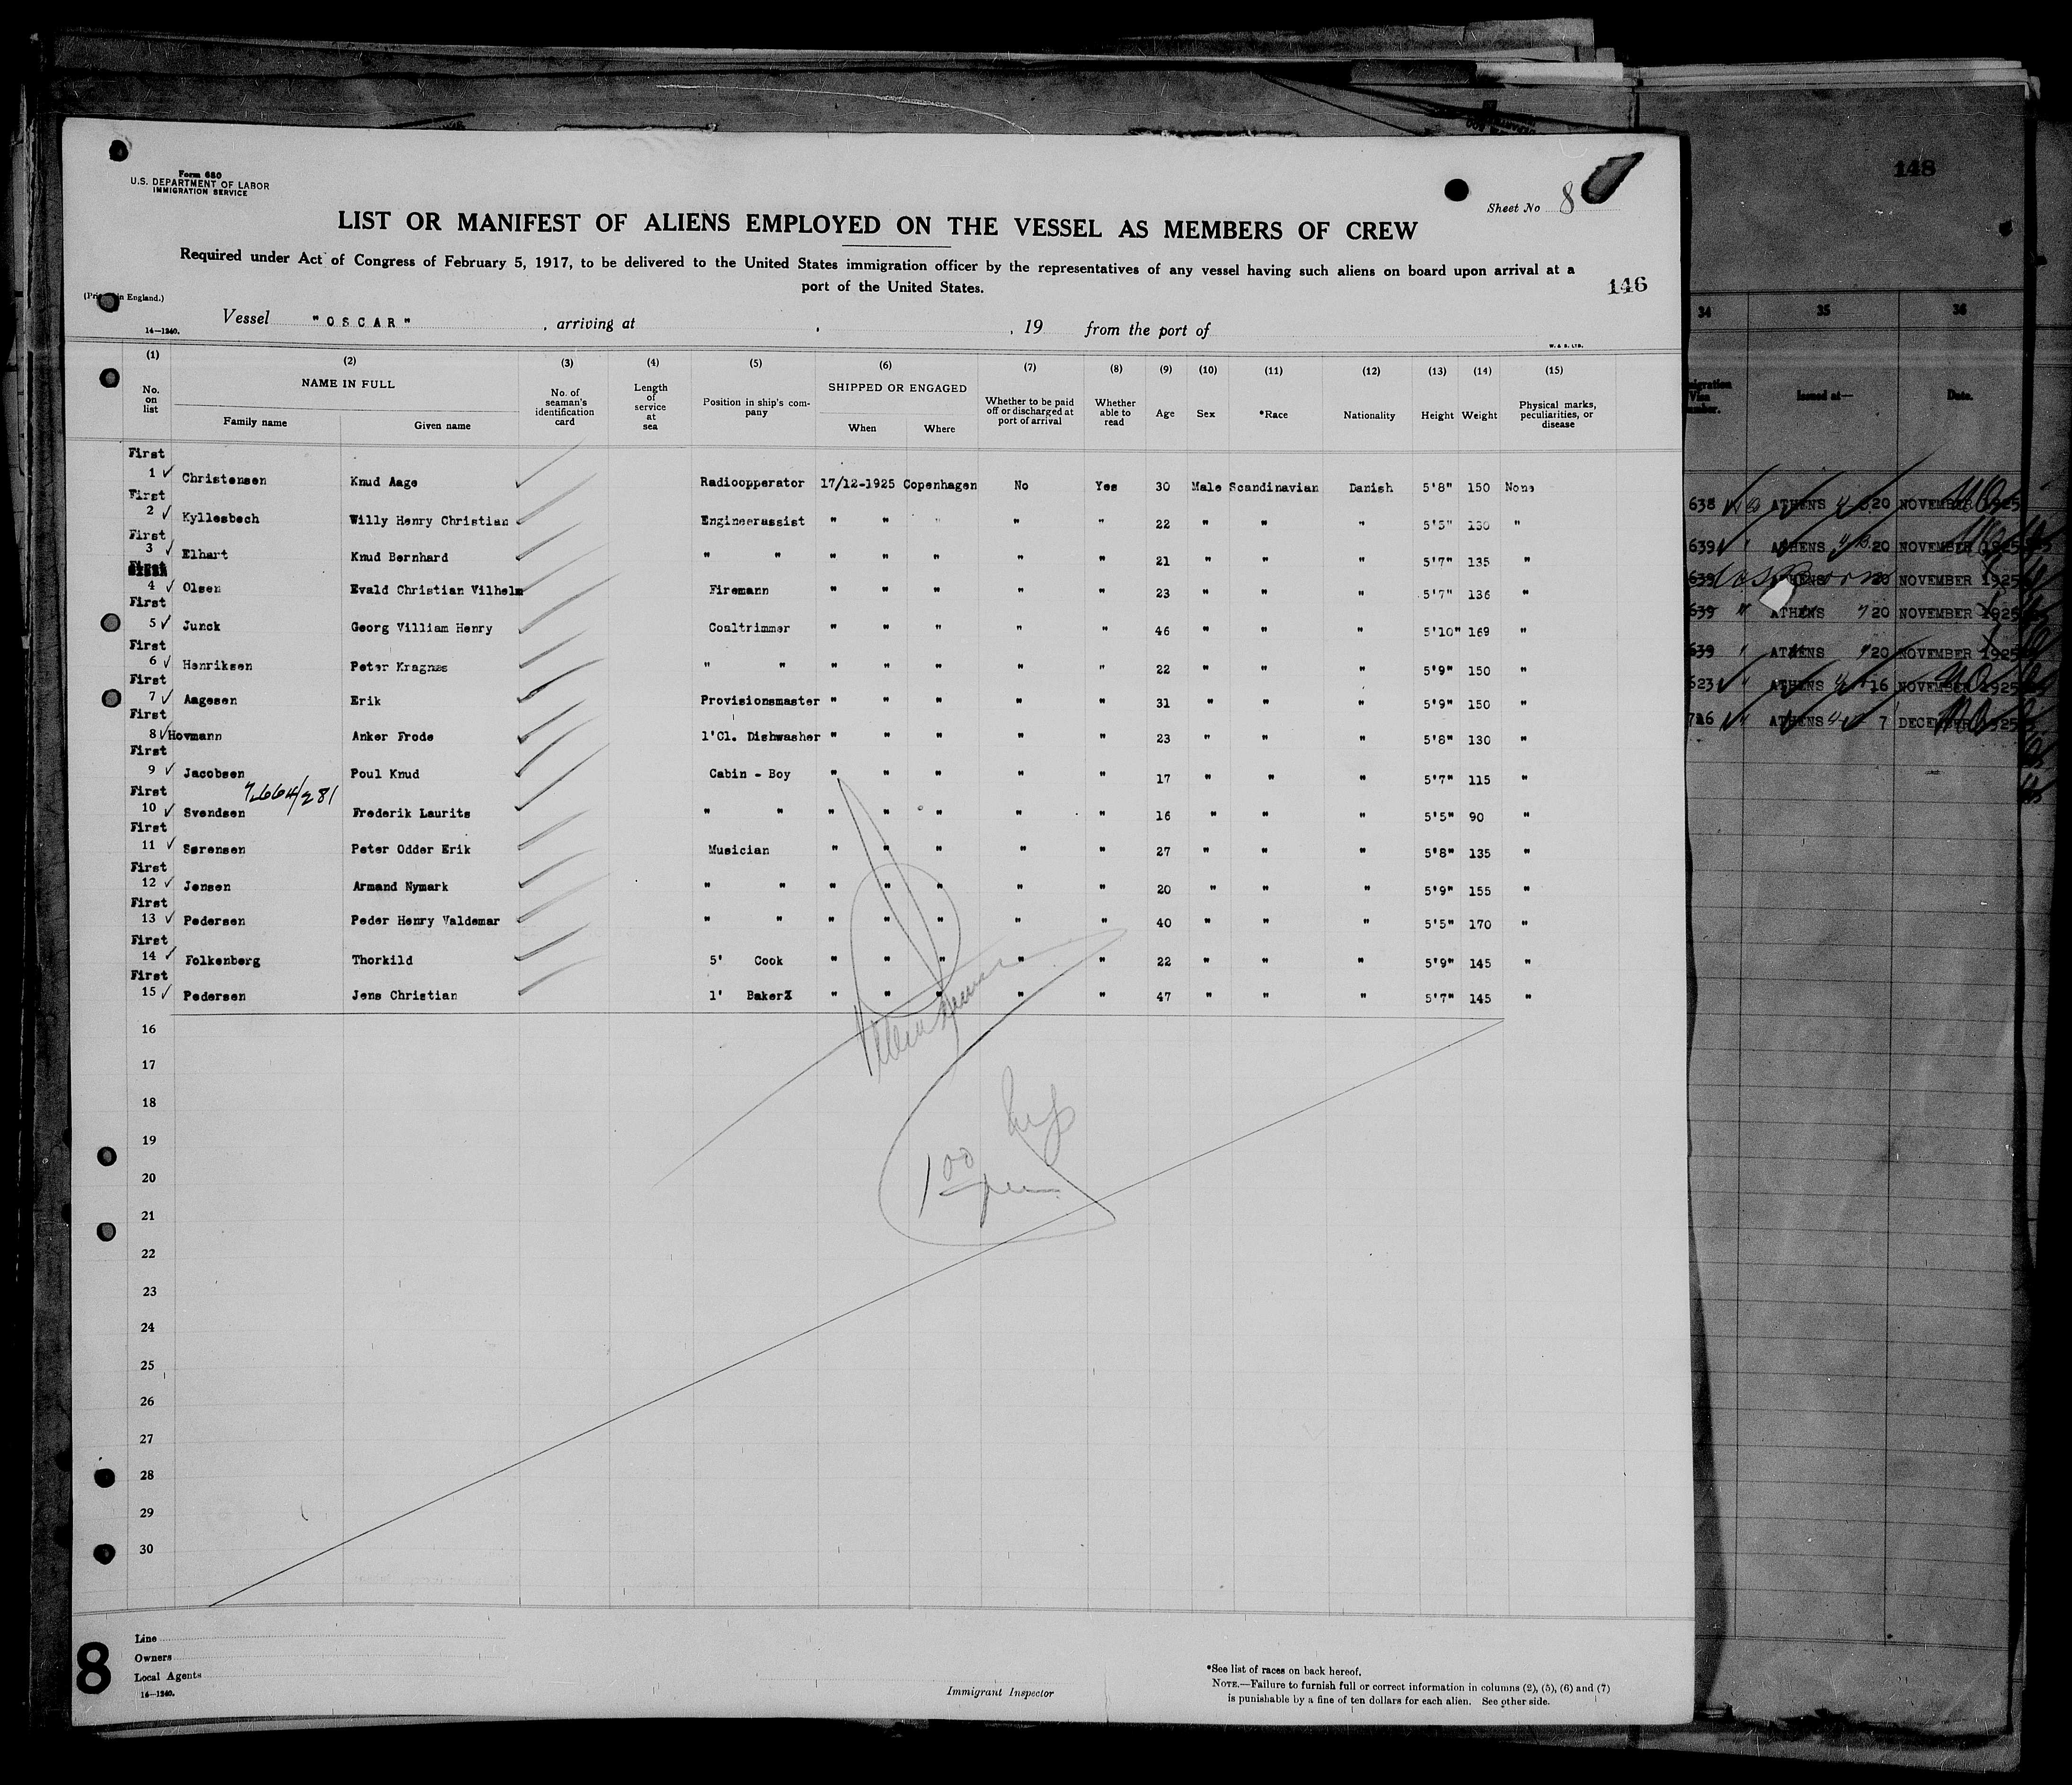 148
Form 680
U.S. DEPARTMENT OF LABOR
IMMIGRATION SERVICE
Sheet No 8
LIST OR MANIFEST OF ALIENS EMPLOYED ON THE VESSEL AS MEMBERS OF CREW
Required under Act of Congress of February 5, 1917, to be delivered to the United States immigration officer by the representatives of any vessel having such aliens on board upon arrival at a
port of the United States.
146
in England.)
14—1240.
Vessel "OSCAR" , arriving at , , 19 from the port of
W. & S. LTD.
(1) (2) (3) (4) (5) (6) (7) (8) (9) (10) (11) (12) (13) (14) (15)
No. on list
NAME IN FULL
Family name Given name
No. of seaman's identification card
Length of service at sea
Position in ship's company
SHIPPED OR ENGAGED
When Where
Whether to be paid off or discharged at port of arrival
Whether able to read
Age Sex *Race Nationality Height Weight
Physical marks, peculiarities, or disease
First
1 ✓ Christensen Knud Aage Radioopperator 17/12-1925 Copenhagen No Yes 30 Male Scandinavian Danish 5'8" 150 None
First
2 ✓ Kyllesbech Willy Henry Christian Engineerassist " " " " " 22 " " " 5'5" 130 "
First
3 ✓ Elhart Knud Bernhard " " " " " " " 21 " " " 5'7" 135 "
First
4 ✓ Olsen Evald Christian Vilhelm Firemann " " " " " 23 " " " 5'7" 136 "
First
5 ✓ Junck Georg Villiam Henry Coaltrimmer " " " " " 46 " " " 5'10" 169 "
First
6 ✓ Henriksen Peter Kragnæs " " " " " " " 22 " " " 5'9" 150 "
First
7 ✓ Aagesen Erik Provisionsmaster " " " " " 31 " " " 5'9" 150 "
First
8 ✓ Hovmann Anker Frode 1'Cl. Dishwasher " " " " " 23 " " " 5'8" 130 "
First
9 ✓ Jacobsen Poul Knud Cabin - Boy " " " " " 17 " " " 5'7" 115 "
First
10 ✓ Svendsen Frederik Laurits " " " " " " " 16 " " " 5'5" 90 "
First
11 ✓ Sørensen Peter Odder Erik Musician " " " " " 27 " " " 5'8" 135 "
First
12 ✓ Jensen Armand Nymark " " " " " " " 20 " " " 5'9" 155 "
First
13 ✓ Pedersen Peder Henry Valdemar " " " " " " " 40 " " " 5'5" 170 "
First
14 ✓ Folkenberg Thorkild 5' Cook " " " " " 22 " " " 5'9" 145 "
First
15 ✓ Pedersen Jens Christian 1' Baker " " " " " 47 " " " 5'7" 145 "
16
17
18
19
20
21
22
23
24
25
26
27
28
29
30
8
Line
Owners
Local Agents
14—1240.
Immigrant Inspector
*See list of races on back hereof.
NOTE.—Failure to furnish full or correct information in columns (2), (5), (6) and (7)
is punishable by a fine of ten dollars for each alien. See other side.
34 35 36
Issued at— Date.
638 ATHENS 20 NOVEMBER 1925
639 ATHENS 20 NOVEMBER 1925
639 20 NOVEMBER 1925
639 ATHENS 20 NOVEMBER 1925
639 ATHENS 20 NOVEMBER 1925
623 ATHENS 16 NOVEMBER 1925
716 ATHENS 7 DECEMBER 1925